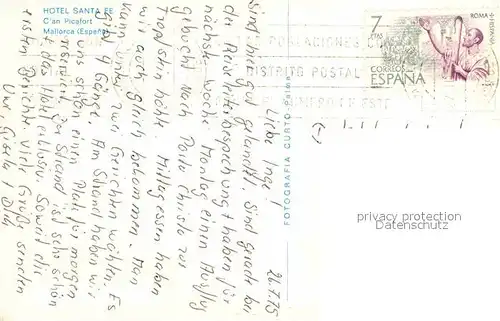 HOTEL SANTA FE
C'an Picafort
Mallorca (España)
26.7.75
Liebe Inge!
Sind hier gut gelandet. Sind gerade bei
der Reiseleiterbesprechung + haben für
nächste Woche Montag einen Ausflug
gebucht nach Porto Christo zur
Tropfsteinhöhle. Mittagessen haben
wir auch gleich bekommen. Man
kann unter zwei Gerichten wählen. Es
gibt 4 Gänge. Am Strand haben wir
uns schon einen Platz für morgen
Der Strand ist sehr schön
+ das Hotel exklusiv. Soweit die
ersten Berichte. Viele Grüße senden
Uwe, Gisela + Dirk
FOTOGRAFIA CURTO
POBLACIONES CON
DISTRITO POSTAL
7
PTAS
ROMA
HISPANIA
CORREOS
ESPAÑA
privacy protection
watermark ansichtskarten-center.de